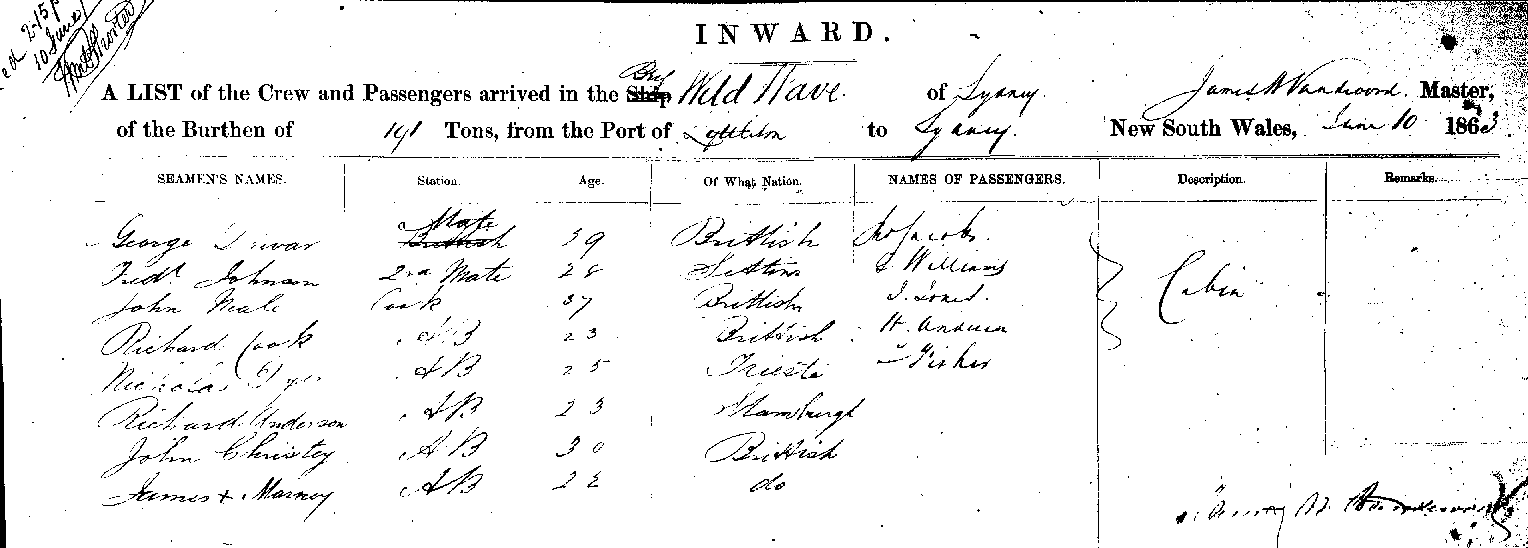 2-15 p
10 June
INWARD.
A LIST of the Crew and Passengers arrived in the Ship Brig Wild Wave of Sydney James H Vandervord. Master,
of the Burthen of 191 Tons, from the Port of to Sydney. New South Wales, June 10 1863
SEAMEN'S NAMES. Station. Age. Of What Nation. NAMES OF PASSENGERS. Description. Remarks.
George Mate British 39 Brittish Jacobs.
Fredk Johnson 2nd Mate 28 Williams Cabin
John Neale Cook 37 Brittish J. Jones.
Richard Cook AB 23 Brittish H.
Nicholas AB 25 Trieste — Fisher
Richard Anderson AB 23 Hamburgh
John Christey AB 30 Brittish
James + Marney AB 22 do